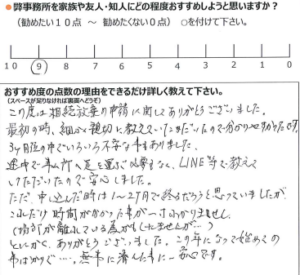 ●弊事務所を家族や友人・知人にどの程度おすすめしようと思いますか?
(勧めたい10点 ～ 勧めたくない0点) ○を付けて下さい。
10 9 8 7 6 5 4 3 2 1 0
おすすめ度の点数の理由をできるだけ詳しく教えて下さい。
(スペースが足りなければ裏面へどうぞ)
この度は相続放棄の申請に関してありがとうございました。
最初の時、細かく親切に教えていただいたので分かりやすかったです。
3ヶ月間の中でいろいろ不安な事もありました。
途中で事ム所の足を運ぶ必要もなく、LINE等で教えて
いただいたので安心しました。
ただ申し込んだ時は1〜2ヶ月で終るだろうと思っていましたが
これだけ時間がかかった事が一寸わかりません。
離れている
とにかく、ありがとうございました。この年になって始めての
事ばかりで…。無事に済んだ事に一安心です。